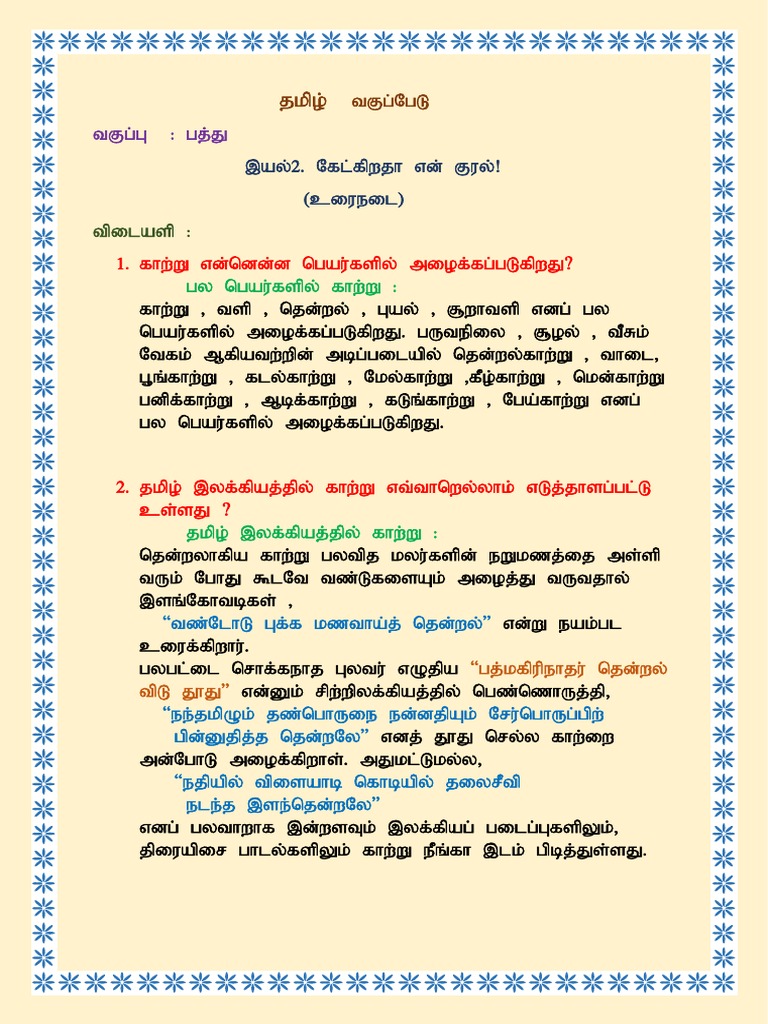 தமிழ் வகுப்பேடு
வகுப்பு : பத்து
இயல்2. கேட்கிறதா என் குரல்!
(உரைநடை)
விடையளி :
1. காற்று என்னென்ன பெயர்களில் அழைக்கப்படுகிறது?
பல பெயர்களில் காற்று :
காற்று , வளி , தென்றல் , புயல் , சூறாவளி எனப் பல
பெயர்களில் அழைக்கப்படுகிறது. பருவநிலை , சூழல் , வீசும்
வேகம் ஆகியவற்றின் அடிப்படையில் தென்றல்காற்று , வாடை,
பூங்காற்று , கடல்காற்று , மேல்காற்று ,கீழ்காற்று , மென்காற்று
பனிக்காற்று , ஆடிக்காற்று , கடுங்காற்று , பேய்காற்று எனப்
பல பெயர்களில் அழைக்கப்படுகிறது.
2. தமிழ் இலக்கியத்தில் காற்று எவ்வாறெல்லாம் எடுத்தாளப்பட்டு
உள்ளது ?
தமிழ் இலக்கியத்தில் காற்று :
தென்றலாகிய காற்று பலவித மலர்களின் நறுமணத்தை அள்ளி
வரும் போது கூடவே வண்டுகளையும் அழைத்து வருவதால்
இளங்கோவடிகள் ,
“வண்டோடு புக்க மணவாய்த் தென்றல்” என்று நயம்பட
உரைக்கிறார்.
பலபட்டை சொக்கநாத புலவர் எழுதிய “பத்மகிரிநாதர் தென்றல்
விடு தூது” என்னும் சிற்றிலக்கியத்தில் பெண்ணொருத்தி,
“நந்தமிழும் தண்பொருநை நன்னதியும் சேர்பொருப்பிற்
பின்னுதித்த தென்றலே” எனத் தூது செல்ல காற்றை
அன்போடு அழைக்கிறாள். அதுமட்டுமல்ல,
“நதியில் விளையாடி கொடியில் தலைசீவி
நடந்த இளந்தென்றலே”
எனப் பலவாறாக இன்றளவும் இலக்கியப் படைப்புகளிலும்,
திரையிசை பாடல்களிலும் காற்று நீங்கா இடம் பிடித்துள்ளது.